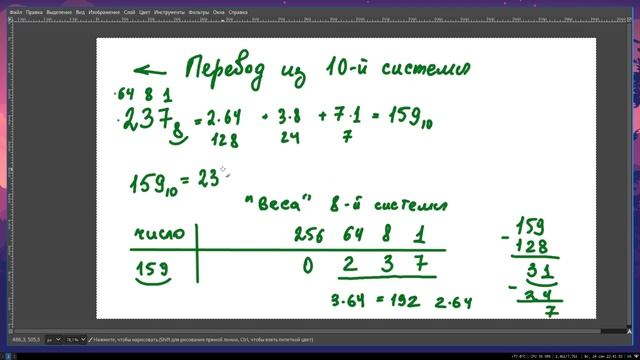 Файл Правка Выделение Вид Изображение Слой Цвет Инструменты Фильтры Окна Справка
← Перевод из 10-й системы
64 8 1
237₈ = 2·64 + 3·8 + 7·1 = 159₁₀
128 24 7
159₁₀ = 23
"Веса" 8-й системы
число 256 64 8 1
159 0 2 3 7
3·64 = 192 2·64
- 159
128
31
- 24
7
466,3, 505,5 px Нажмите, чтобы нарисовать (Shift для рисования прямой линии, Ctrl, чтобы взять пипеткой цвет)